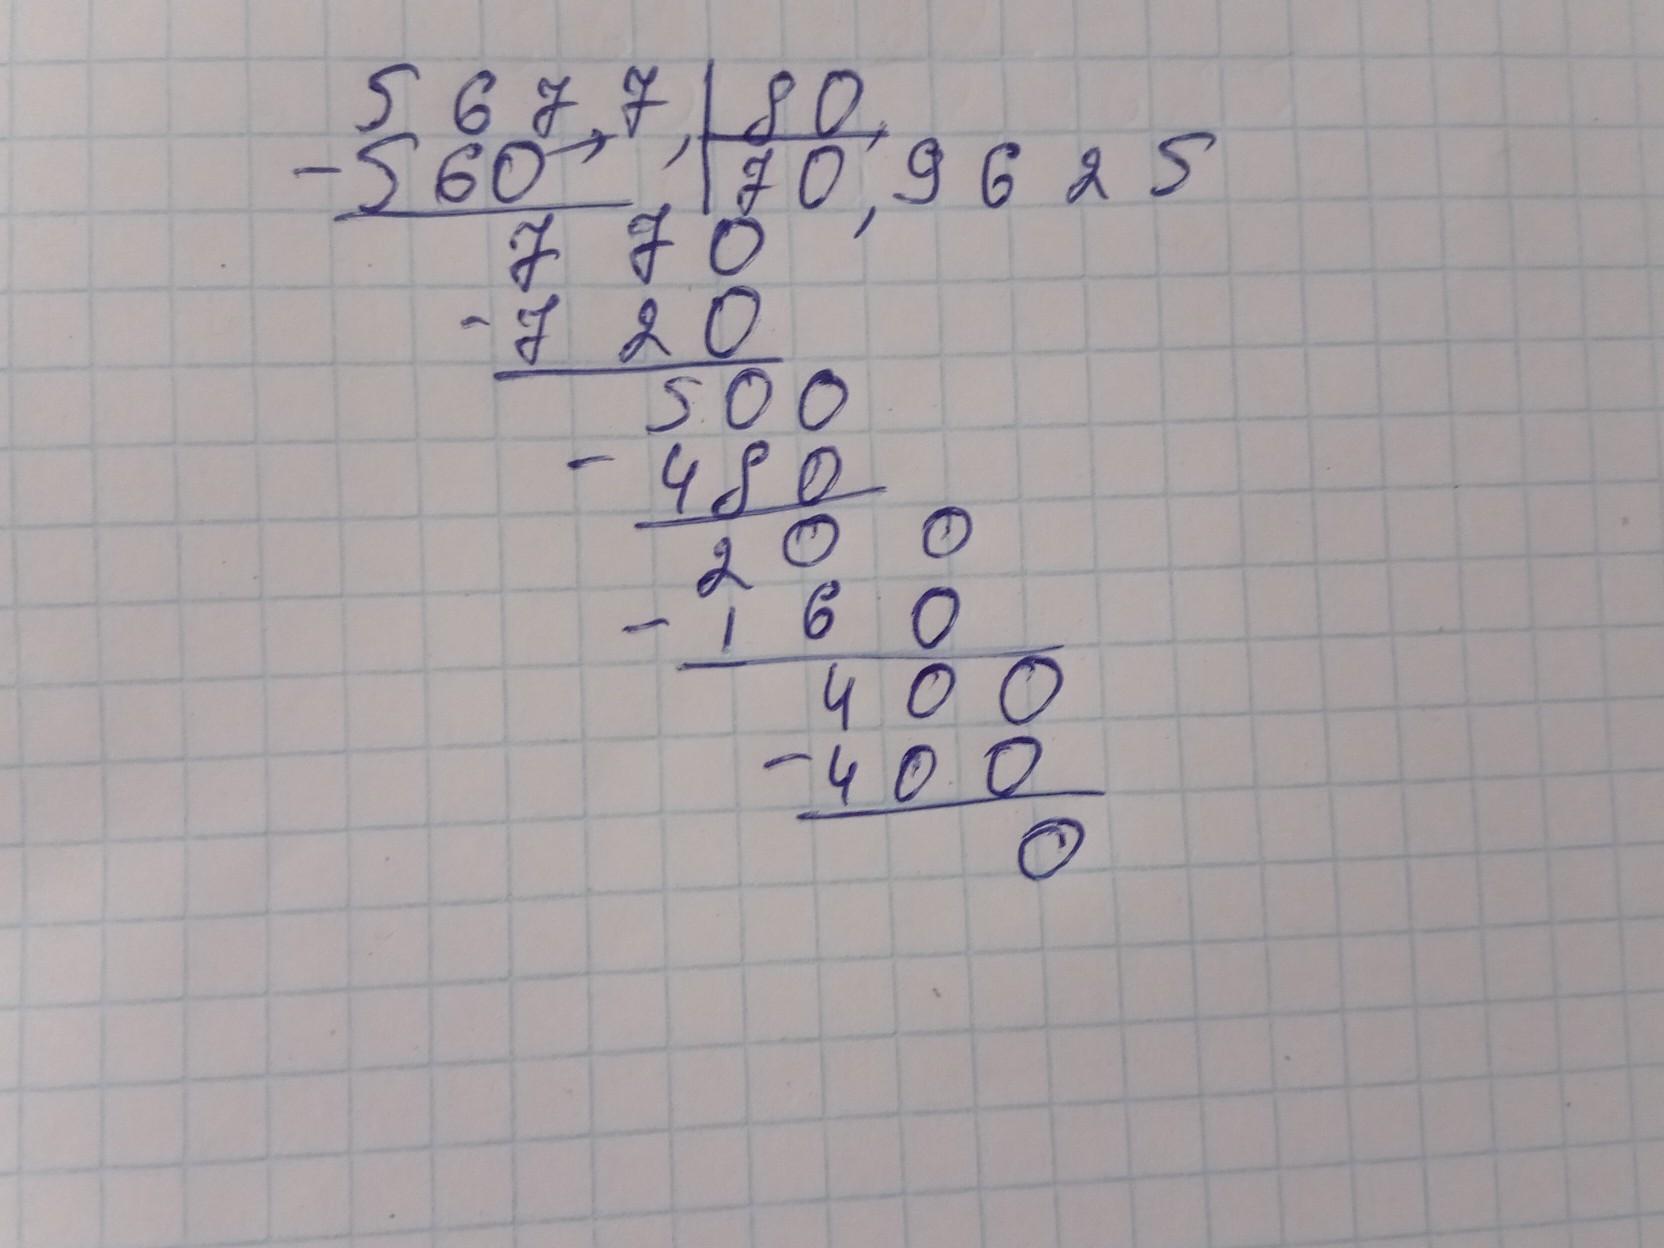 5 6 7 7, | 80,
- 560 → , | 70,9625
7 7 0
- 7 2 0
5 0 0
- 4 8 0
2 0 0
- 1 6 0
4 0 0
- 4 0 0
0